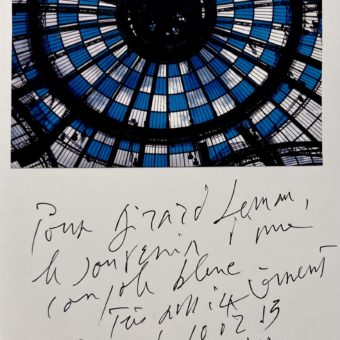 Pour Girard Leman,
le souvenir d'une
coupole bleue
Très amicalement
10 02 13